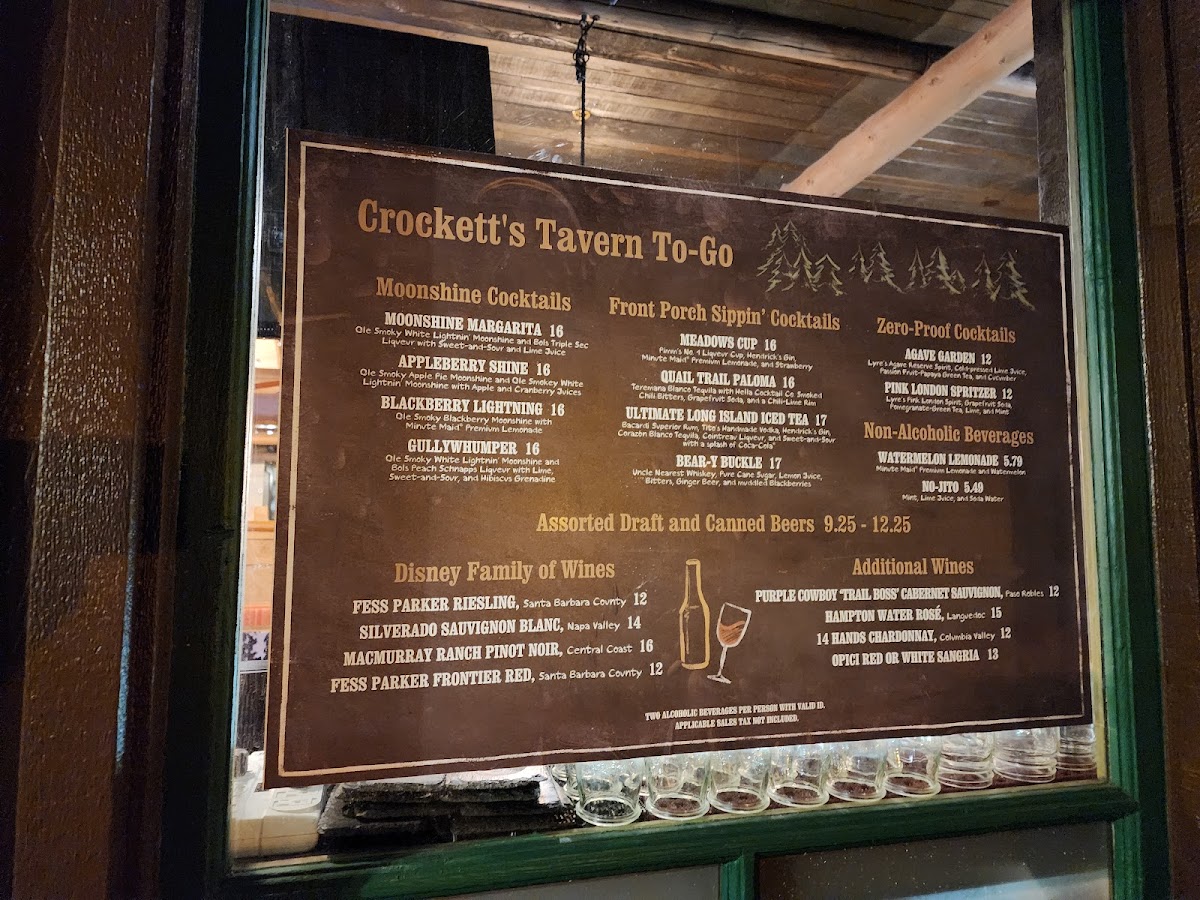 Crockett's Tavern To-Go
Moonshine Cocktails
MOONSHINE MARGARITA 16
Ole Smoky White Lightnin' Moonshine and Bols Triple Sec
Liqueur with Sweet-and-Sour and Lime Juice
APPLEBERRY SHINE 16
Ole Smoky Apple Pie Moonshine and Ole Smokey White
Lightnin' Moonshine with Apple and Cranberry Juices
BLACKBERRY LIGHTNING 16
Ole Smoky Blackberry Moonshine with
Minute Maid® Premium Lemonade
GULLYWHUMPER 16
Ole Smoky White Lightnin' Moonshine and
Bols Peach Schnapps Liqueur with Lime,
Sweet-and-Sour, and Hibiscus Grenadine
Front Porch Sippin' Cocktails
MEADOWS CUP 16
Pimm's No. 1 Liqueur Cup, Hendrick's Gin,
Minute Maid® Premium Lemonade, and Strawberry
QUAIL TRAIL PALOMA 16
Teremana Blanco Tequila with Hella Cocktail Co. Smoked
Chili Bitters, Grapefruit Soda, and a Chili-Lime Rim
ULTIMATE LONG ISLAND ICED TEA 17
Bacardi Superior Rum, Tito's Handmade Vodka, Hendrick's Gin,
Corazón Blanco Tequila, Cointreau Liqueur, and Sweet-and-Sour
with a splash of Coca-Cola®
BEAR-Y BUCKLE 17
Uncle Nearest Whiskey, Pure Cane Sugar, Lemon Juice,
Bitters, Ginger Beer, and muddled Blackberries
Zero-Proof Cocktails
AGAVE GARDEN 12
Lyre's Agave Reserve Spirit, Cold-pressed Lime Juice,
Passion Fruit-Papaya Green Tea, and Cucumber
PINK LONDON SPRITZER 12
Lyre's Pink London Spirit, Grapefruit Soda,
Pomegranate-Green Tea, Lime, and Mint
Non-Alcoholic Beverages
WATERMELON LEMONADE 5.79
Minute Maid® Premium Lemonade and Watermelon
NO-JITO 5.49
Mint, Lime Juice, and Soda Water
Assorted Draft and Canned Beers 9.25 - 12.25
Disney Family of Wines
FESS PARKER RIESLING, Santa Barbara County 12
SILVERADO SAUVIGNON BLANC, Napa Valley 14
MACMURRAY RANCH PINOT NOIR, Central Coast 16
FESS PARKER FRONTIER RED, Santa Barbara County 12
Additional Wines
PURPLE COWBOY 'TRAIL BOSS' CABERNET SAUVIGNON, Paso Robles 12
HAMPTON WATER ROSÉ, Languedoc 15
14 HANDS CHARDONNAY, Columbia Valley 12
OPICI RED OR WHITE SANGRIA 13
TWO ALCOHOLIC BEVERAGES PER PERSON WITH VALID ID.
APPLICABLE SALES TAX NOT INCLUDED.